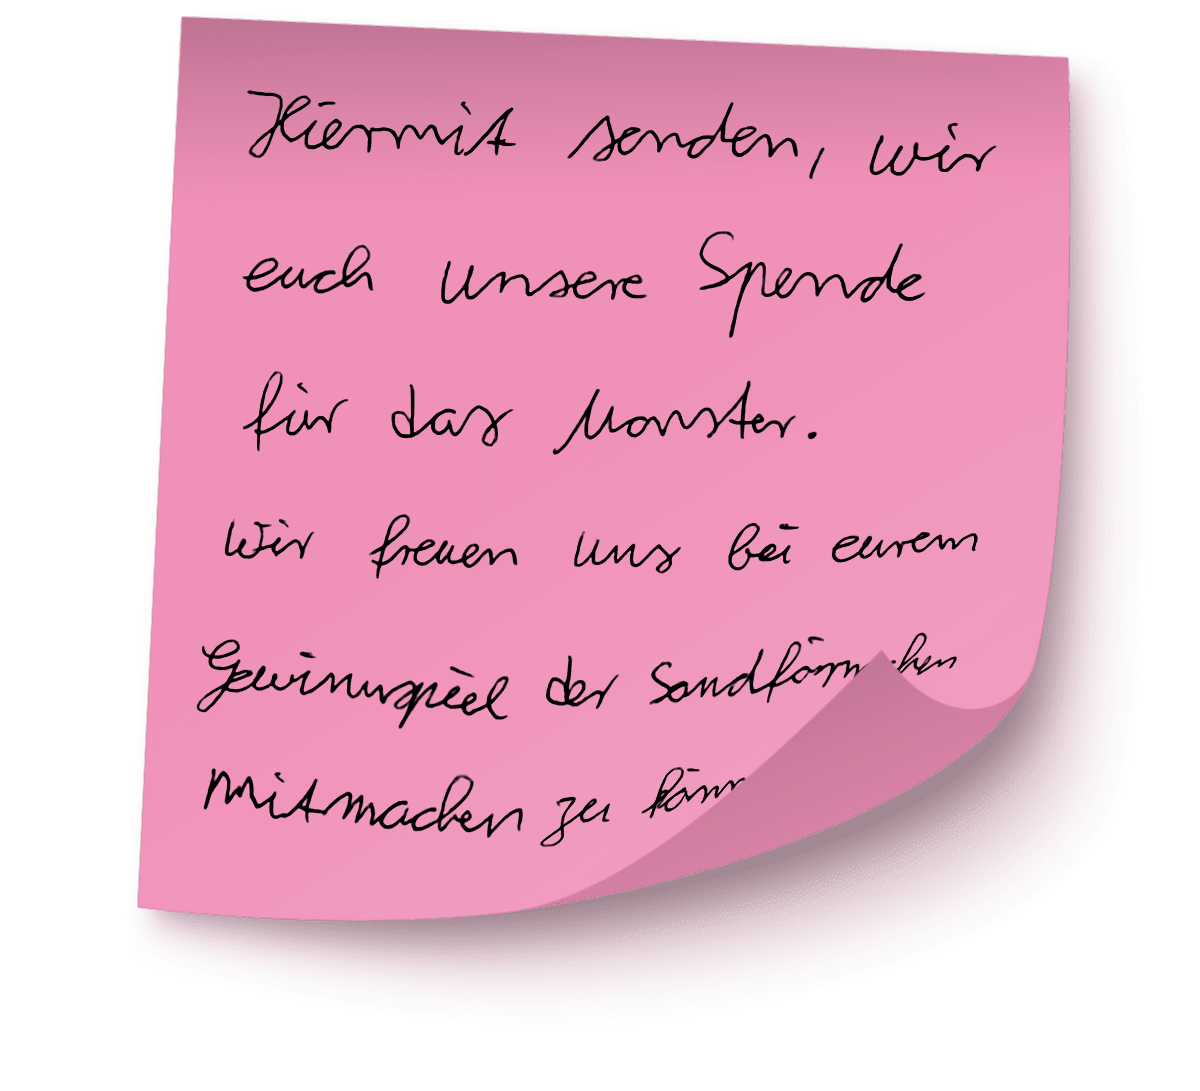 Hiermit senden, wir
euch unsere Spende
für das Monster.
Wir freuen uns bei eurem
Gewinnspiel der Sandförmchen
mitmachen zu könn